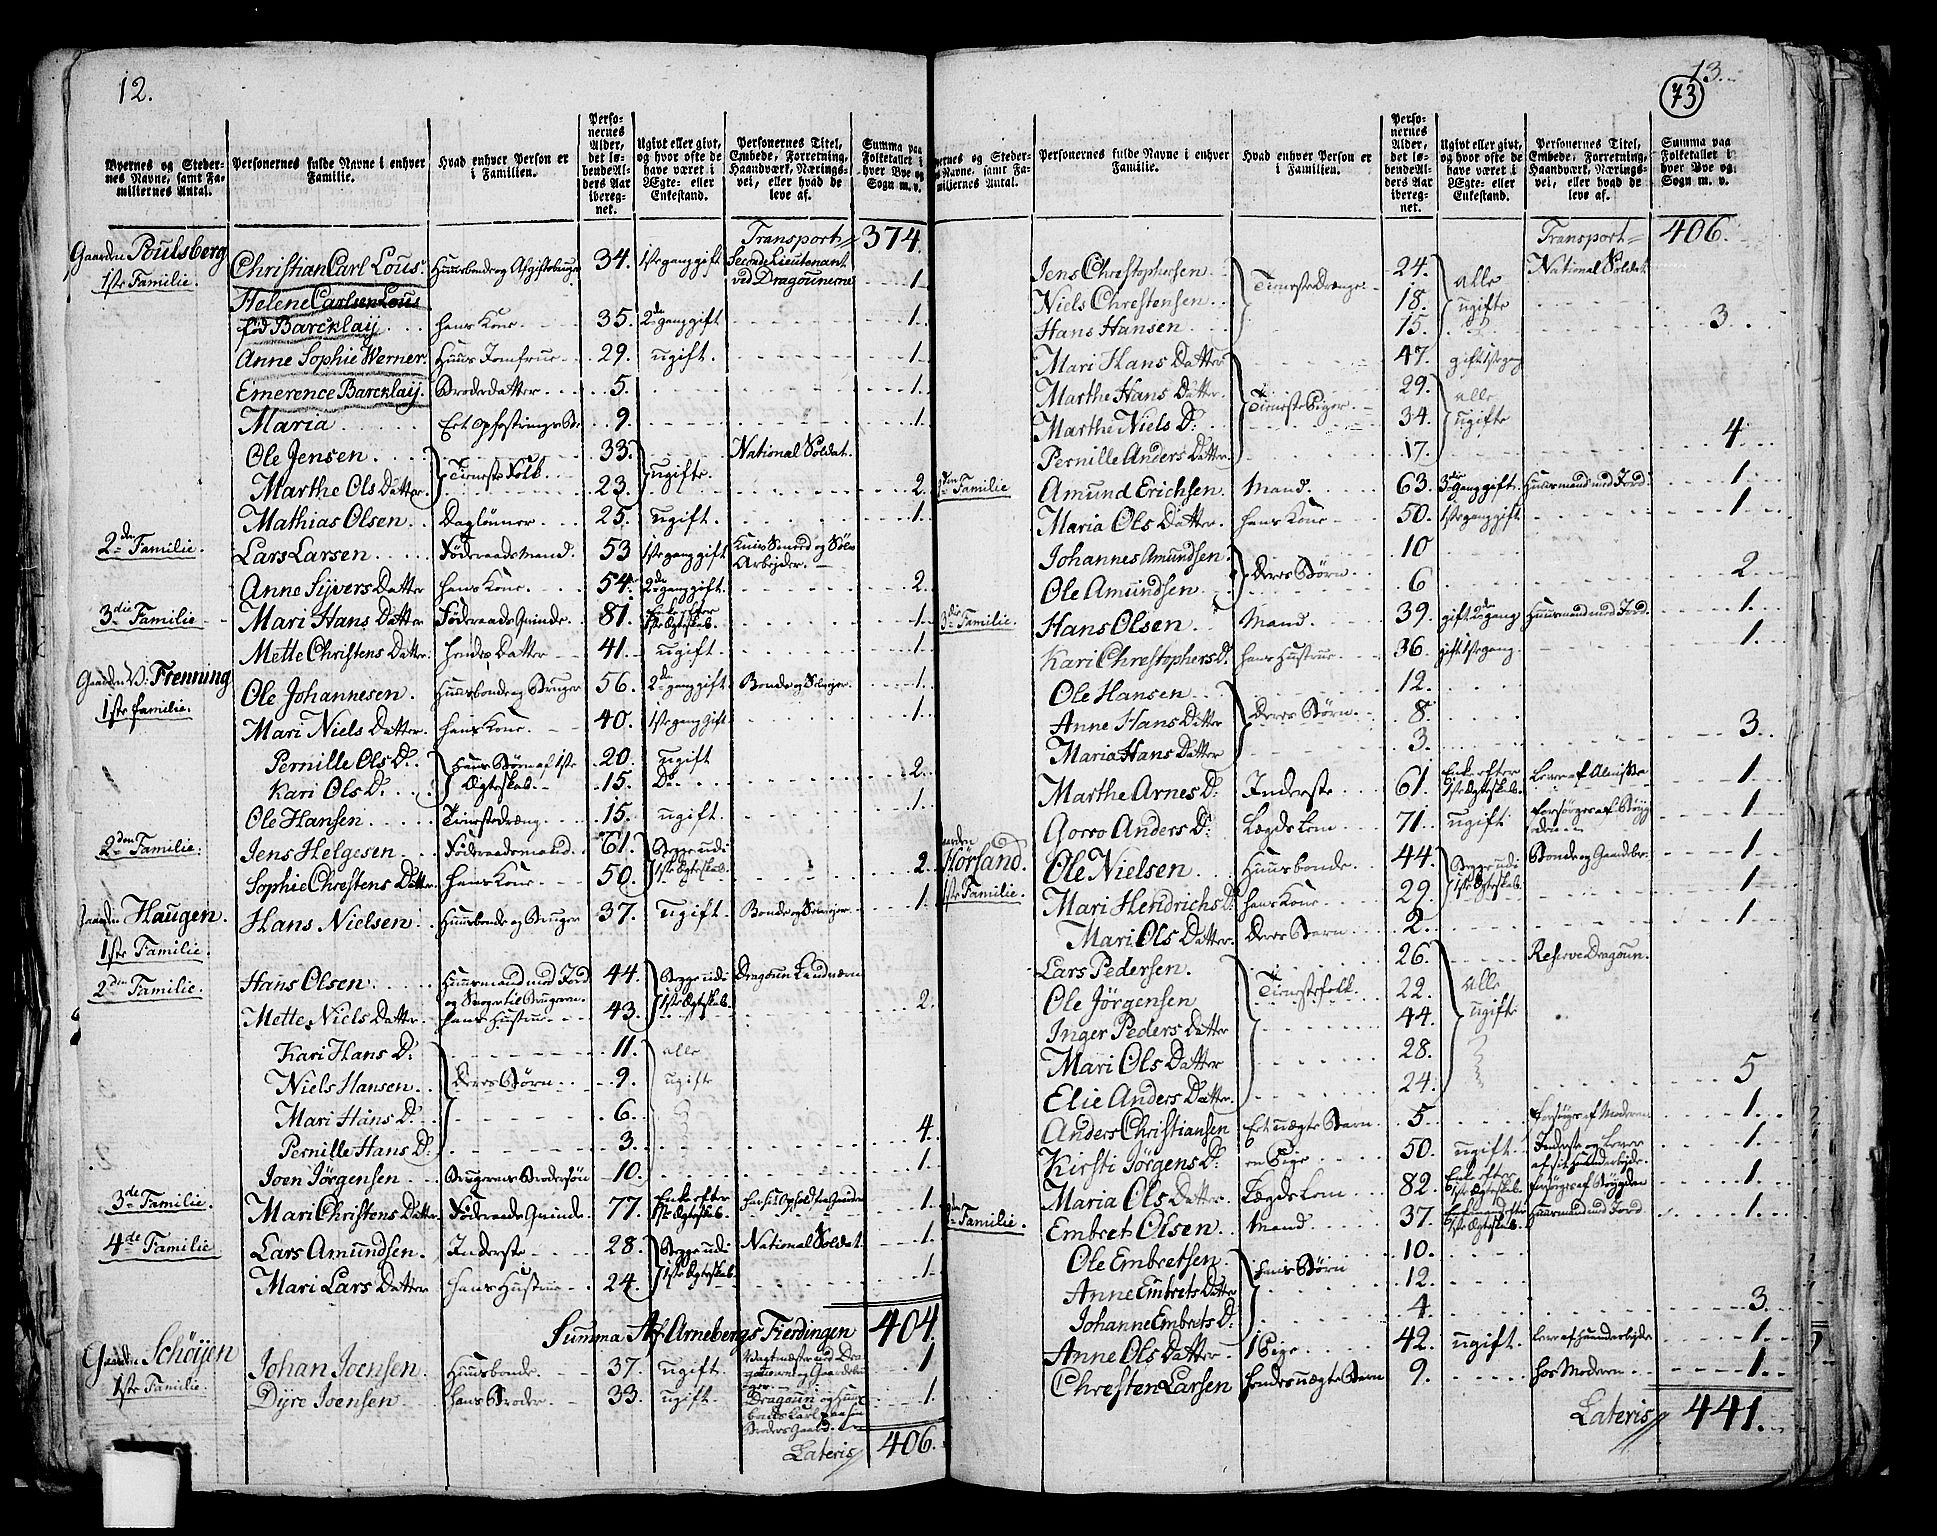 12.
Byernes og Steder-
nes Navne, samt Fa-
miliernes Antal.
Personernes fulde Navne i enhver
Familie.
Hvad enhver Person er
i Familien.
Perso-
nernes
Alder,
det lø-
bende Al-
ders Aar
ibereg-
net.
Ugivt eller givt,
og hvor ofte de
have været i
Ægte- eller
Enkestand.
Personernes Titel,
Embede, Forretning,
Haandværk, Nærings-
vei, eller hvad de
leve af.
Summa paa
Folketallet i
hver Bye og
Sogn m. v.
Transport 374
Gaarden Poulsberg
1ste Familie. Christian Carl Lous. Huusbonde og Afgiftsbruger 34. 1ste gang gift Second Lieutenant
ved Dragounerne 1.
Helene Carlsen Lous
fød Barcklaij hans Kone 35. 2den gang gift 1.
Anne Sophie Werner. Huus Jomfrue 29. ugift. 1.
Emerence Barcklaij. Broderdatter 5. 1.
Maria Et opfostrings B. 9. 1.
Ole Jensen. Tieneste Folk 33. ugifte. National Soldat.
Marthe Ols Datter. 23. 2.
Mathias Olsen. Daglønner. 25. ugift. 1.
2den Familie. Lars Larsen Föderaadsmand. 53 1ste gang gift Kniv Smed og Sölv
Arbeider.
Anne Sijvers Datter hans Kone 54. 2den gang gift. 2.
3die Familie Mari Hans Datter Föderaads Qvinde. 81. Enke efter
1ste Ægteskab. 1.
Mette Christens Datter. hendes Datter 41. ugift. 1.
Gaarden V. Frenning
1ste familie. Ole Johannesen. Huusbonde og Bruger 56. 2den gang gift Bonde og Selvejer. 1.
Mari Niels Datter. hans Kone. 40. 1ste gang gift 1.
Pernille Ols D. hans Börn af 1ste 20. ugift
Kari Ols D. Ægteskab. 15. Do. 2.
Ole Hansen Tienestedreng. 15. ugift. 1.
2den Familie. Jens Helgesen Föderaadsmand. 61. Begge udi
Sophie Chrestens Datter. hans Kone 50. 1ste Ægteskab. 2.
Gaarden Haugen.
1ste Familie. Hans Nielsen Huusbonde og Bruger 37. ugift Bonde og Selvejer 1.
2den Familie. Hans Olsen Huusmand med Jord 44. Begge udi Dragoun
Mette Niels Datter. hans Hustrue 43. 1ste Ægteskab. 2.
Kari Hans D. 11. alle
Niels Hansen deres Börn 9. ugift
Mari Hans D. 6.
Pernille Hans D. 3. 4.
Joen Jörgensen Brugerens Brodersön 10. 1.
3de Familie. Mari Christens Datter. Föderaads Qvinde. 77. Enke efter
1ste Ægteskab. har sit Ophold paa Gaarden 1.
4de Familie Lars Amundsen. Inderste 28. Begge udi National Soldat. 1.
Mari Lars Datter hans Hustrue 24. 1ste Ægteskab. 1.
Summa Af Arnebergs Fierdingen 404.
Gaarden Schöijen
1ste Familie Johan Joensen Huusbonde. 37. ugift 1
Dijre Joensen hans Broder. 33. ugift. Dragoun 1.
Lateris 406.
13.
73
Byernes og Steder-
nes Navne, samt Fa-
miliernes Antal.
Personernes fulde Navne i enhver
Familie.
Hvad enhver Person er
i Familien.
Perso-
nernes
Alder,
det lø-
bende Al-
ders Aar
ibereg-
net.
Ugivt eller givt,
og hvor ofte de
have været i
Ægte- eller
Enkestand.
Personernes Titel,
Embede, Forretning,
Haandværk, Nærings-
vei, eller hvad de
leve af.
Summa paa
Folketallet i
hver Bye og
Sogn m. v.
Transport 406.
Jens Chrestophersen. Tieneste Drenge 24. alle National Soldat.
Niels Chrestensen 18. ugifte
Hans Hansen 15. 3.
Mari Hans Datter 47. gift 1ste gang
Marthe Hans Datter. Tieneste Piger. 29. alle
Marthe Niels D. 34. ugifte
Pernille Anders Datter. 17. 4.
2den Familie Amund Erichsen. Mand. 63. 3die gang gift. Huusmand med Jord. 1.
Maria Ols Datter. hans Kone 50. 1ste gang gift 1.
Johannes Amundsen. deres Börn. 10
Ole Amundsen 6 2.
3die Familie. Hans Olsen Mand. 39. gift 2den gang Huusmand med Jord. 1.
Kari Chrestophers D. hans Hustrue 36. gift 1ste gang 1.
Ole Hansen 12.
Anne Hans Datter deres Börn. 8.
Maria Hans Datter 3. 3.
Marthe Arnes D. Inderste 61. Enke efter
1ste Ægteskab. Lever af Almisse 1.
Gorro Anders D. Lægdslem 71. ugift forsörges af Bÿgden 1.
Gaarden
Horsand.
1ste Familie. Ole Nielsen Huusbonde 44. Begge udi Bonde og Gaardbr. 1.
Mari Hendrichs D. hans Kone 29. 1ste Ægteskab. 1.
Mari Ols Datter. deres Barn 2. 1.
Lars Pedersen. 26. Reserve Dragoun.
Ole Jörgensen Tienestefolk 22. alle
Inger Peders Datter 44. ugifte
Mari Ols Datter 28.
Elie Anders Datter. 24. 5
Anders Christiansen Et uægte Barn 5. forsörges af Moderen 1.
Kirsti Jörgens D. en Pige 50. ugift. Inderste og lever
af sit Haandarbejde. 1.
Maria Ols Datter. Lægdslem 82. Enke efter
1ste Ægteskab. forsörges af Bÿgden 1.
2den Familie. Embret Olsen Mand 37. Enkemand efter
1ste Ægteskab. Huusmand med Jord 1.
Ole Embretsen 10.
Anne Embrets Datter hans Börn 12.
Johanne Embrets D. 4 3.
Anne Ols Datter 1 Pige 42. ugift. Lever af Haandarbejde 1.
Chresten Larsen hendes uægte Barn 9. hos Moderen 1.
Lateris 441.